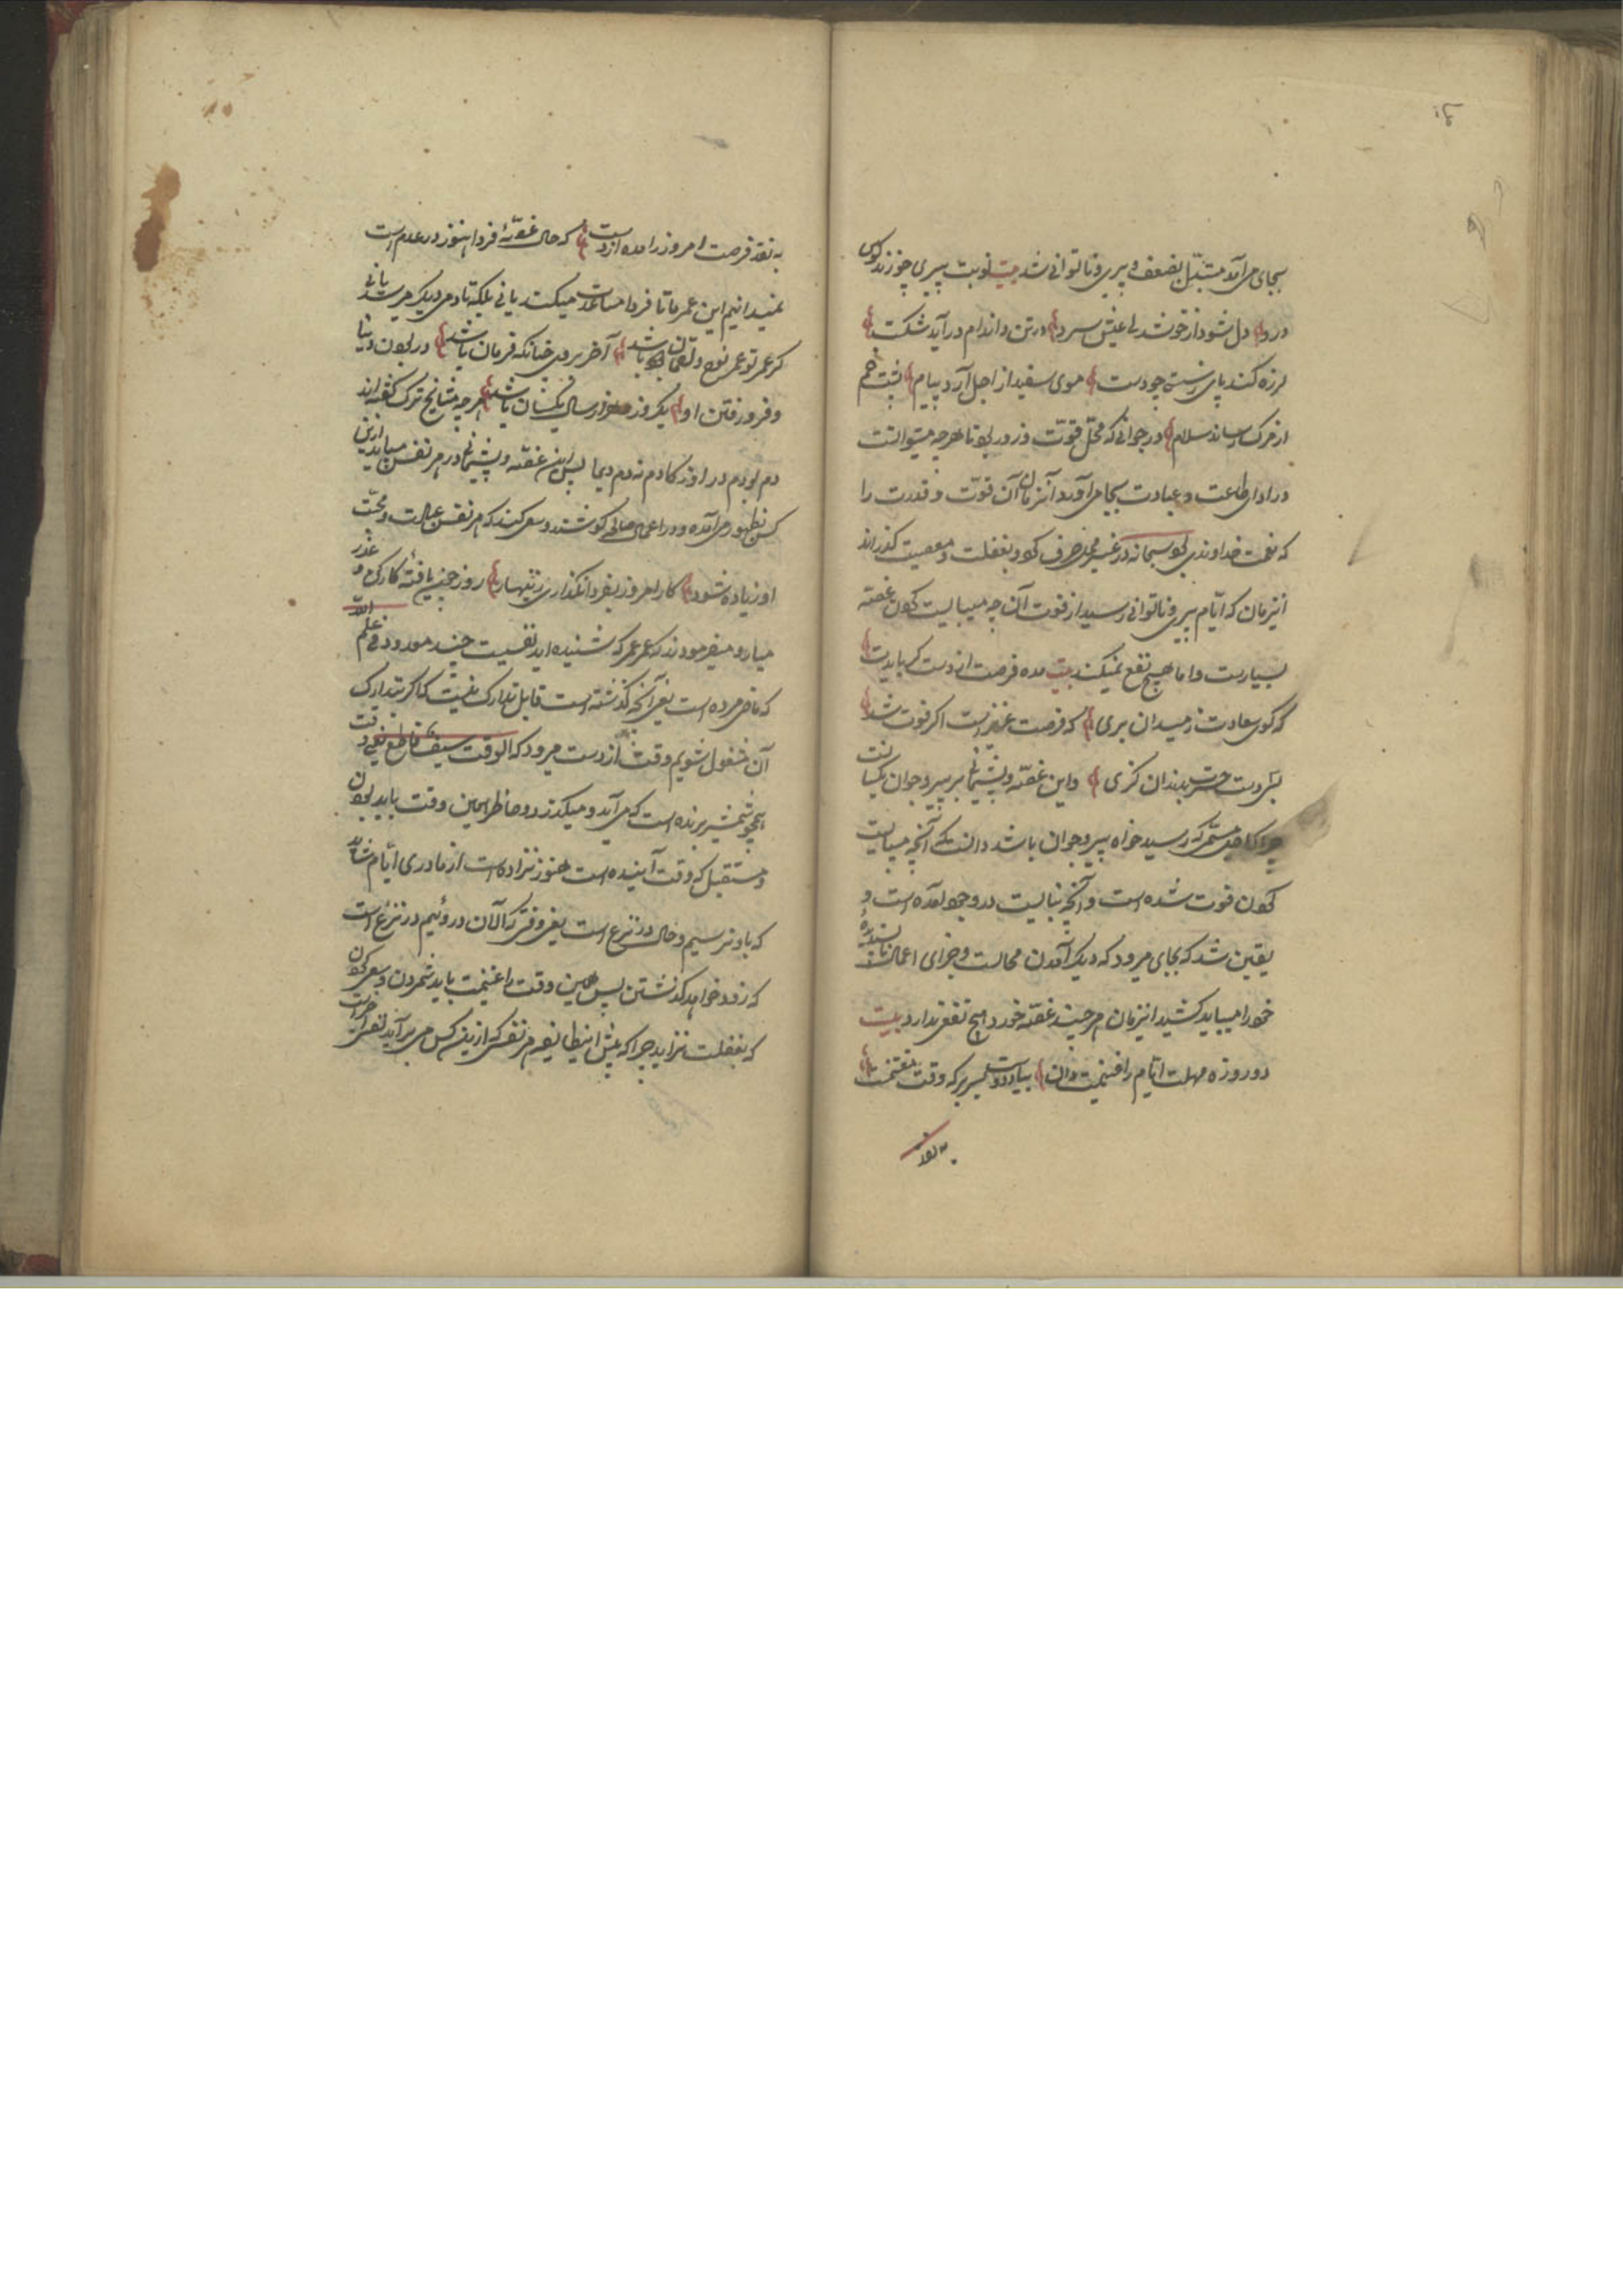 بجای می‌آمد متبدّل بضعف و پیری و ناتوانی شد بیت نوبت پیری چو زند کوس
درد دل شود از خوشدلی و عیش سرد در تن و اندام در آید شکست
لرزه کند پای ز سستی چو دست موی سفید از اجل آرد پیام پشت خم
از مرک رساند سلام در جوانی که محلّ قوّت و زور بود تا هرچه میتوانست
در ادای طاعت و عبادت بجا می‌آورد آنزمان آن قوّت و قدرت را
که نعمت خداوندی بود سبحانه در غیر محل صرف کرد و بغفلت و معصیت گذراند
اینزمان که ایّام پیری و ناتوانی رسید از فوت آن چه میبایست کردن غصّه
بسیارست و اما هیچ نفع نمیکند بیت مده فرصت از دست گر بایدت
که گوی سعادت ز میدان بری که فرصت عزیزست اگر فوت شد
بسی دست حسرت بدندان گزی و این غصّه و پشیمانی بر پیر و جوان یکسانست
چرا که رسید خواه پیر و جوان باشد دانست که آنچه میبایست
کردن فوت شده است و آنچه نبایست در وجود آمده است و
یقین شد که بجای میرود که دیگر آمدن محالست و جزای اعمال ناپسندیدهٔ
خود را میباید کشید اینزمان هر چند غصّه خورد هیچ نفع ندارد بیت
دو روزه مهلت ایّام را غنیمت دان بیاد دوست بسر بر که وقت مغتنمست
به نقد
به نقد فرصت امروز را مده از دست که حال غرّهٔ فردا هنوز در عدم است
نمیدانیم این عمر ما تا فردا مساعدت میکند یا نی بلکه تا دم دیگر میرسد یا نی
گر عمر تو عمر نوح و لقمان باشد آخر بروی چنانکه فرمان باشد در بودن دنیا
و فرو رفتن او یکروز و هزار سال یکسان باشد هر چه مشایخ ترک گفته‌اند
دم بو دم در پس این غصّه و پشیمانی در هر نفس میباید ازین
کس بظهور می‌آمده و در اعمال صالح کوشند و سعی کنند که هر نفس عبادت و محبّت
او زیاده شود کار امروز بفردا نگذاری زنهار روز چون یافتهٔ کار کن و عذر
میار و میفرمودند که عمر عمر که شنیده‌اید نفسیست چند معدود فی علم الله
که ماضی مرده است یعنی آنچه گذشته است قابل تدارک نیست که اگر بتدارک
آن مشغول شویم وقت از دست میرود که الوقت سیف قاطع یعنی وقت
همچو شمشیر برنده است که می‌آید و میگذرد و حاضر همین وقت باید بودن
و مستقبل که وقت آینده است هنوز نزاده است از مادری ایّام شاید
که باو نرسیم و حال در نزع است یعنی وقتی که الآن دروئیم در نزع است
که زود خواهد گذشتن پس همین وقت را غنیمت باید شمردن و سعی کردن
که بغفلت نزاید چرا که هر نفس که ازین کس می بر آید